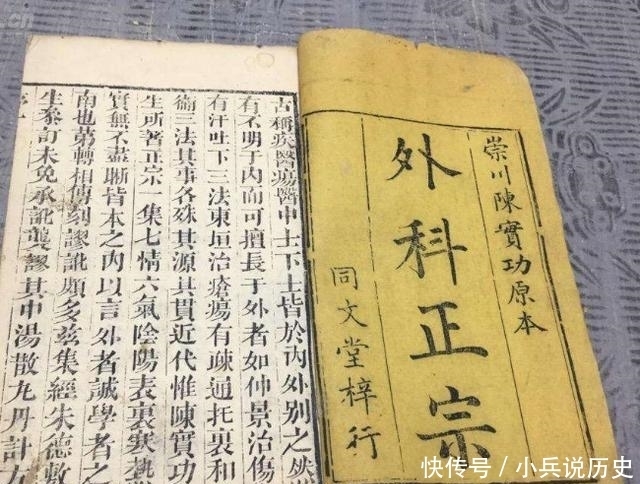 崇川陳實功原本
外科正宗
同文堂梓行
古稱疾醫瘍醫中士下士皆於內外別之然
有不明于內而可擅長于外者如仲景治傷
有汗吐下三法東垣治瘡瘍有疎通托裏和
衞三法其事各殊其源其貫近代惟陳實功
生所著正宗一集七情六氣陰陽表裏寒熱
實無不盡晰皆本之內以言外者誠學者之
南也第轉相傳刻謬訛頗多茲集經朱德敷
生參訂未免承訛襲謬其中湯散丸丹計方
快传号/小兵说历史